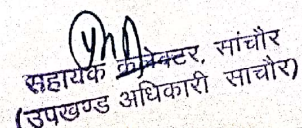 सहायक कलेक्टर, सांचौर
(उपखण्ड अधिकारी साचौर)